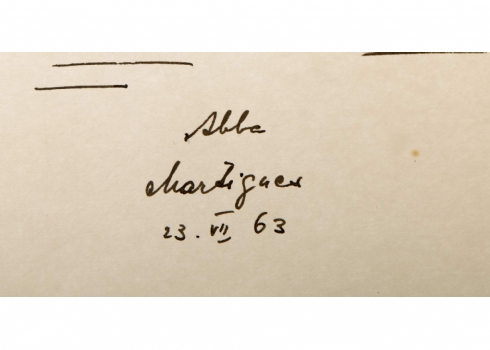 Abba
Martigues
23. VII 63